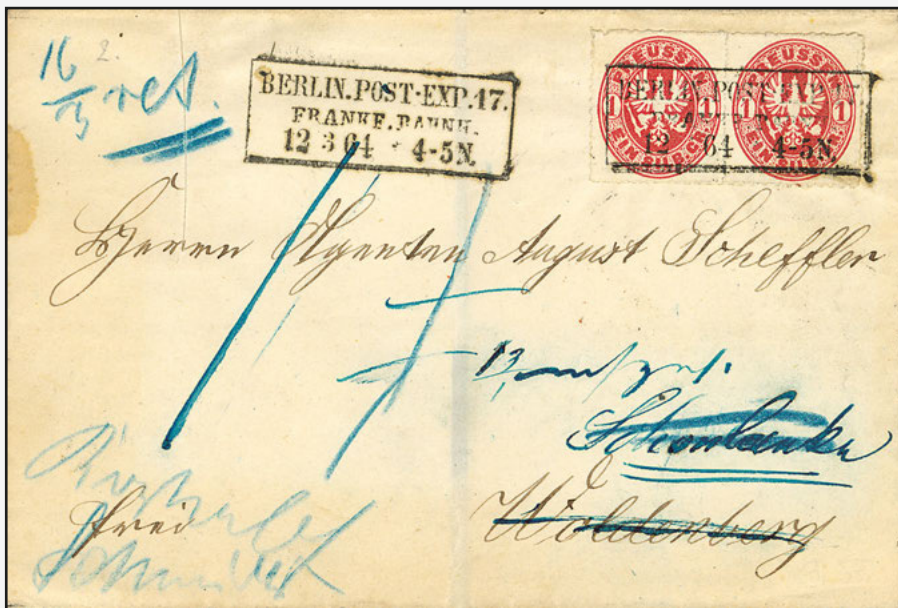 16
/3 ret.
BERLIN.POST-EXP.17.
FRANKF.BAHNH.
12 3 64 * 4-5N.
PREUSSEN
1 1
EIN SILB.GR.
PREUSSEN
1 1
EIN SILB.GR.
BERLIN.POST-EXP.17.
12 64 4-5N.
Herrn Agenten August Scheffler
13
Schonlanke
frei
Woldenberg